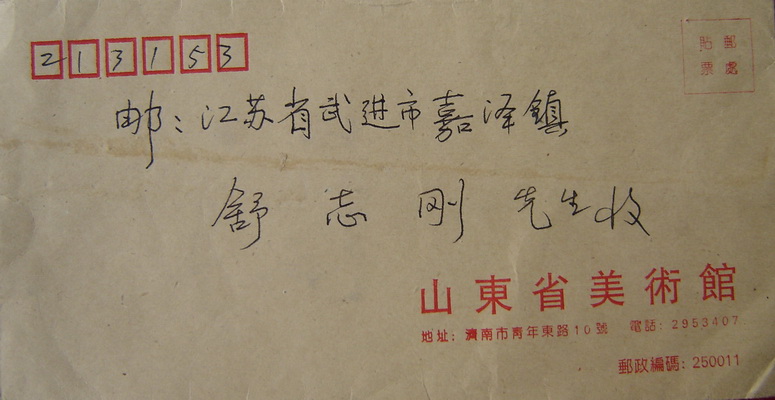 213153
郵貼
處票
邮：江苏省武进市嘉泽镇
舒志刚先生收
山東省美術館
地址：濟南市青年東路10號 電話：2953407
郵政編碼：250011